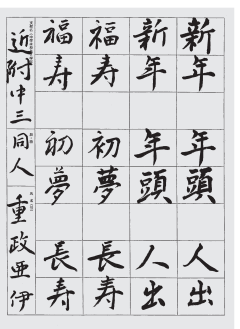 新年 年頭 人出
新年 年頭 人出
福寿 初夢 長寿
福寿 初夢 長寿
近附中三同人 重政亜伊